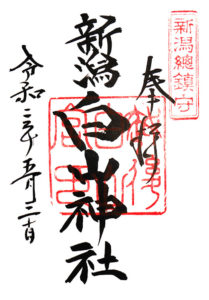 新潟總鎮守
奉拝
新潟白山神社
令和三年五月三日